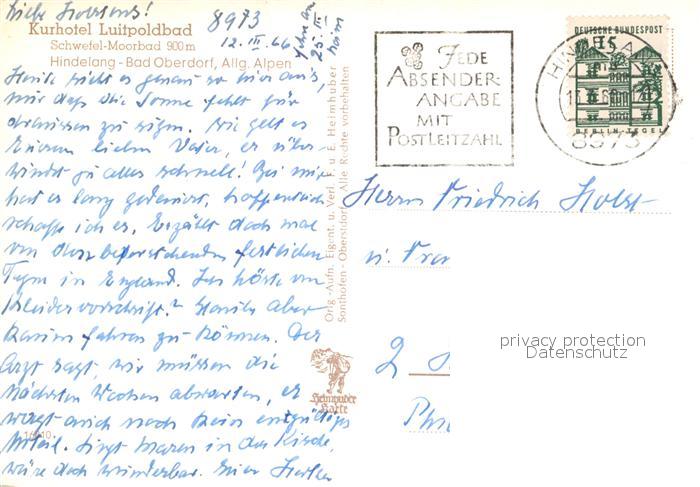 Liebe Holstens!
Kurhotel Luitpoldbad
Schwefel-Moorbad 900 m
Hindelang - Bad Oberdorf, Allg. Alpen
8973
12. III. 66
Heute sieht es genau so hier aus,
nur daß die Sonne fehlt für
draussen zu sitzen. Wie geht es
Eurem lieben Vater, er über-
windet ja alles schnell! Bei mir
hat es lang gedauert, hoffentlich
schaffe ich es. Erzählt doch mal
von den bevorstehenden festlichen
Tagen in England. Ich hörte von
Kleidervorschrift? Heute aber
kaum fahren zu können. Der
Arzt sagt, wir müssen die
nächsten Wochen abwarten, er
wagt auch noch kein entgültiges
Urteil. Singt Maren in der Kirche,
wäre doch wunderbar. Euer
16210
Orig.-Aufn. Eigent. u. Verl. F. u. E. Heimhuber
Sonthofen-Oberstdorf. Alle Rechte vorbehalten
Heimhuber
Karte
JEDE
ABSENDER-
ANGABE
MIT
POSTLEITZAHL
DEUTSCHE BUNDESPOST
15
BERLIN-TEGEL
HINDELA
8973
Herrn Friedrich Holst
u. Frau
2
privacy protection
Datenschutz